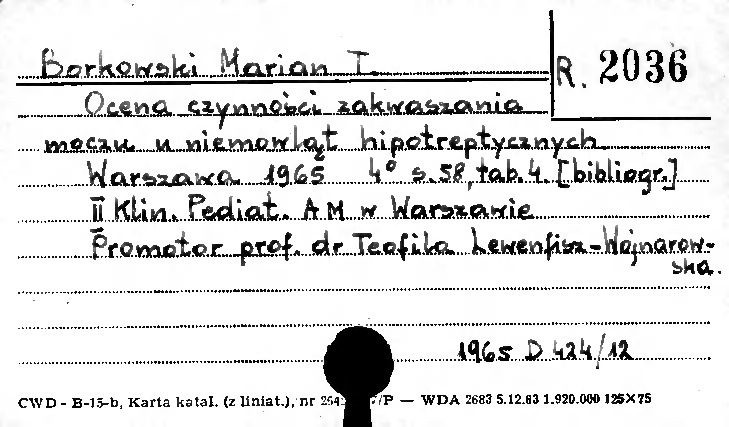 Borkowski Marian T.
R. 2036
Ocena czynności zakwaszania
moczu u niemowląt hipotreptycznych
Warszawa 1965 4° s.58, tab.4. [bibliogr.]
II Klin. Pediat. AM w Warszawie
Promotor prof. dr Teofila Lewenfisz-Wojnarow-
ska.
1965 D 424/12
CWD - B-15-b, Karta katal. (z liniat.), nr 254 /P — WDA 2683 5.12.63 1.920.000 125×75